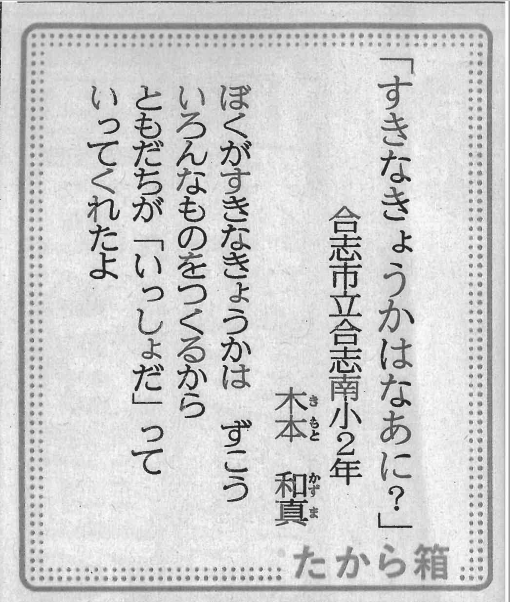 「すきなきょうかはなあに？」
合志市立合志南小２年
木本　和真
きもと　かずま
ぼくがすきなきょうかは　ずこう
いろんなものをつくるから
ともだちが「いっしょだ」って
いってくれたよ
たから箱